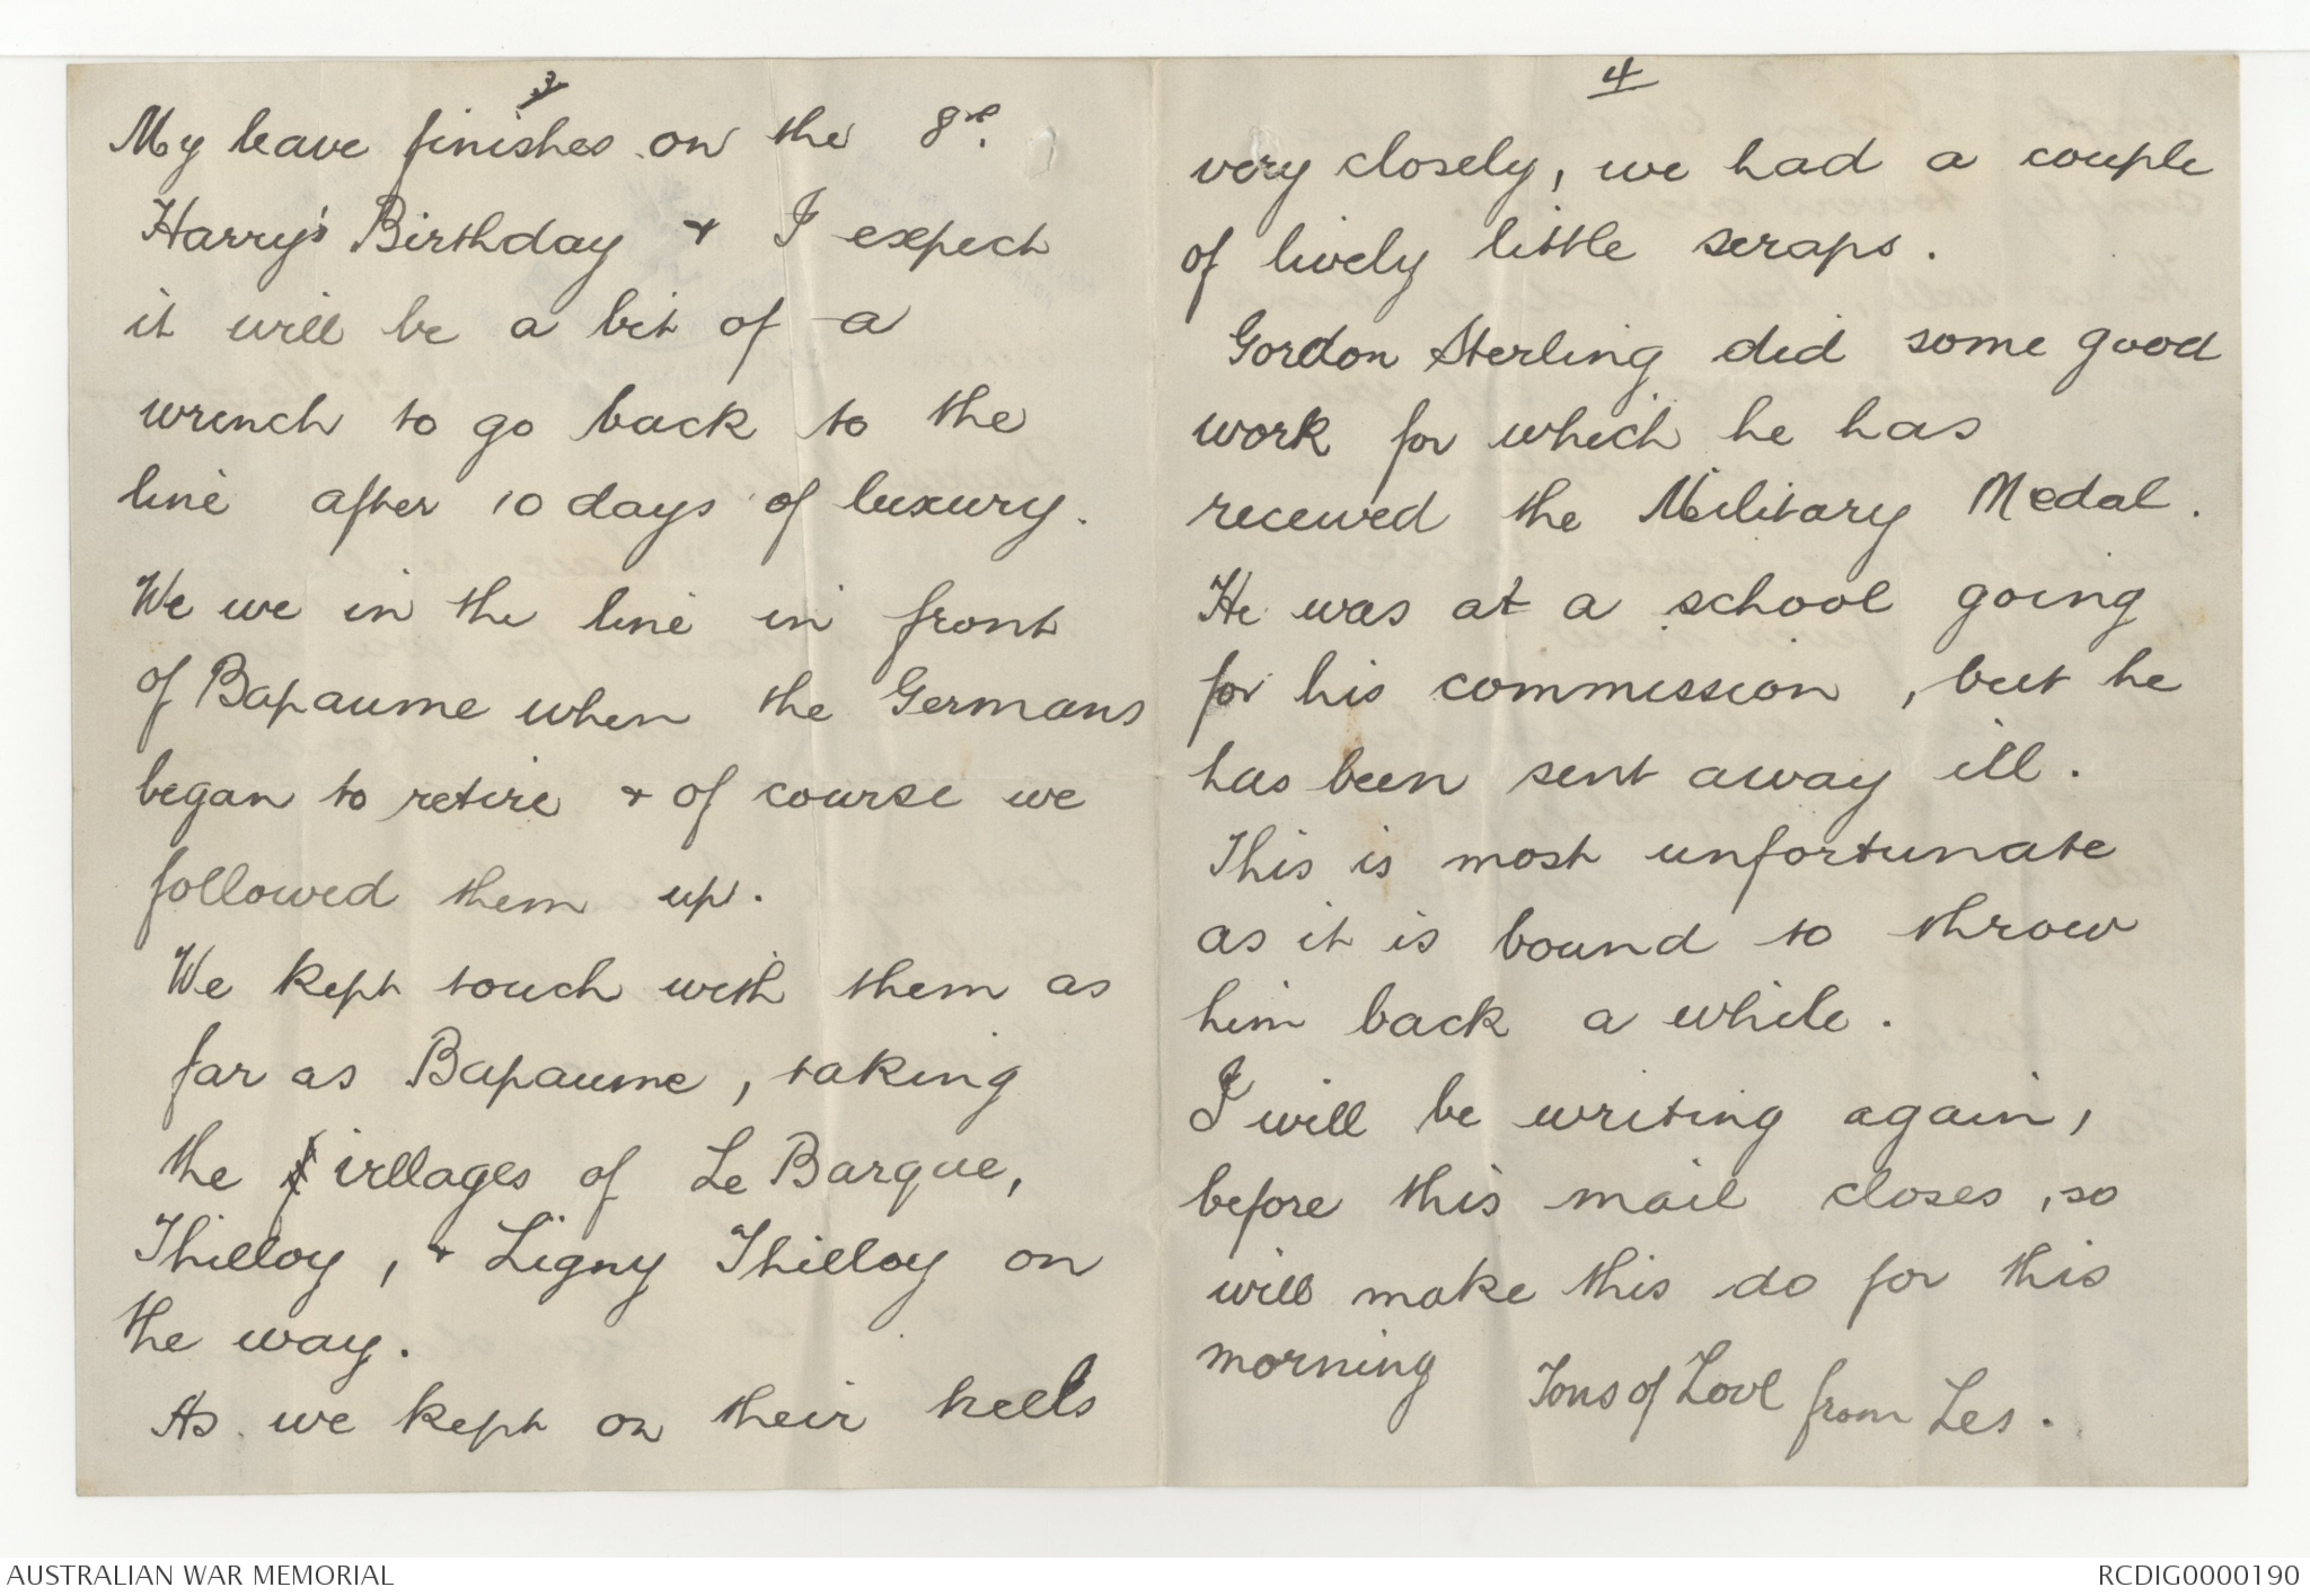 3
My leave finishes on the 8th.
Harry's Birthday & I expect
it will be a bit of a
wrench to go back to the
line after 10 days of luxury.
We we in the line in front
of Bapaume when the Germans
began to retire & of course we
followed them up.
We kept touch with them as
far as Bapaume, taking
the villages of Le Barque,
Thilloy, & Ligny Thilloy on
the way.
As we kept on their heels
4
very closely, we had a couple
of lively little scraps.
Gordon Sterling did some good
work for which he has
received the Military Medal.
He was at a school going
for his commission, but he
has been sent away ill.
This is most unfortunate
as it is bound to throw
him back a while.
I will be writing again,
before this mail closes, so
will make this do for this
morning Tons of Love from Les.
AUSTRALIAN WAR MEMORIAL
RCDIG0000190